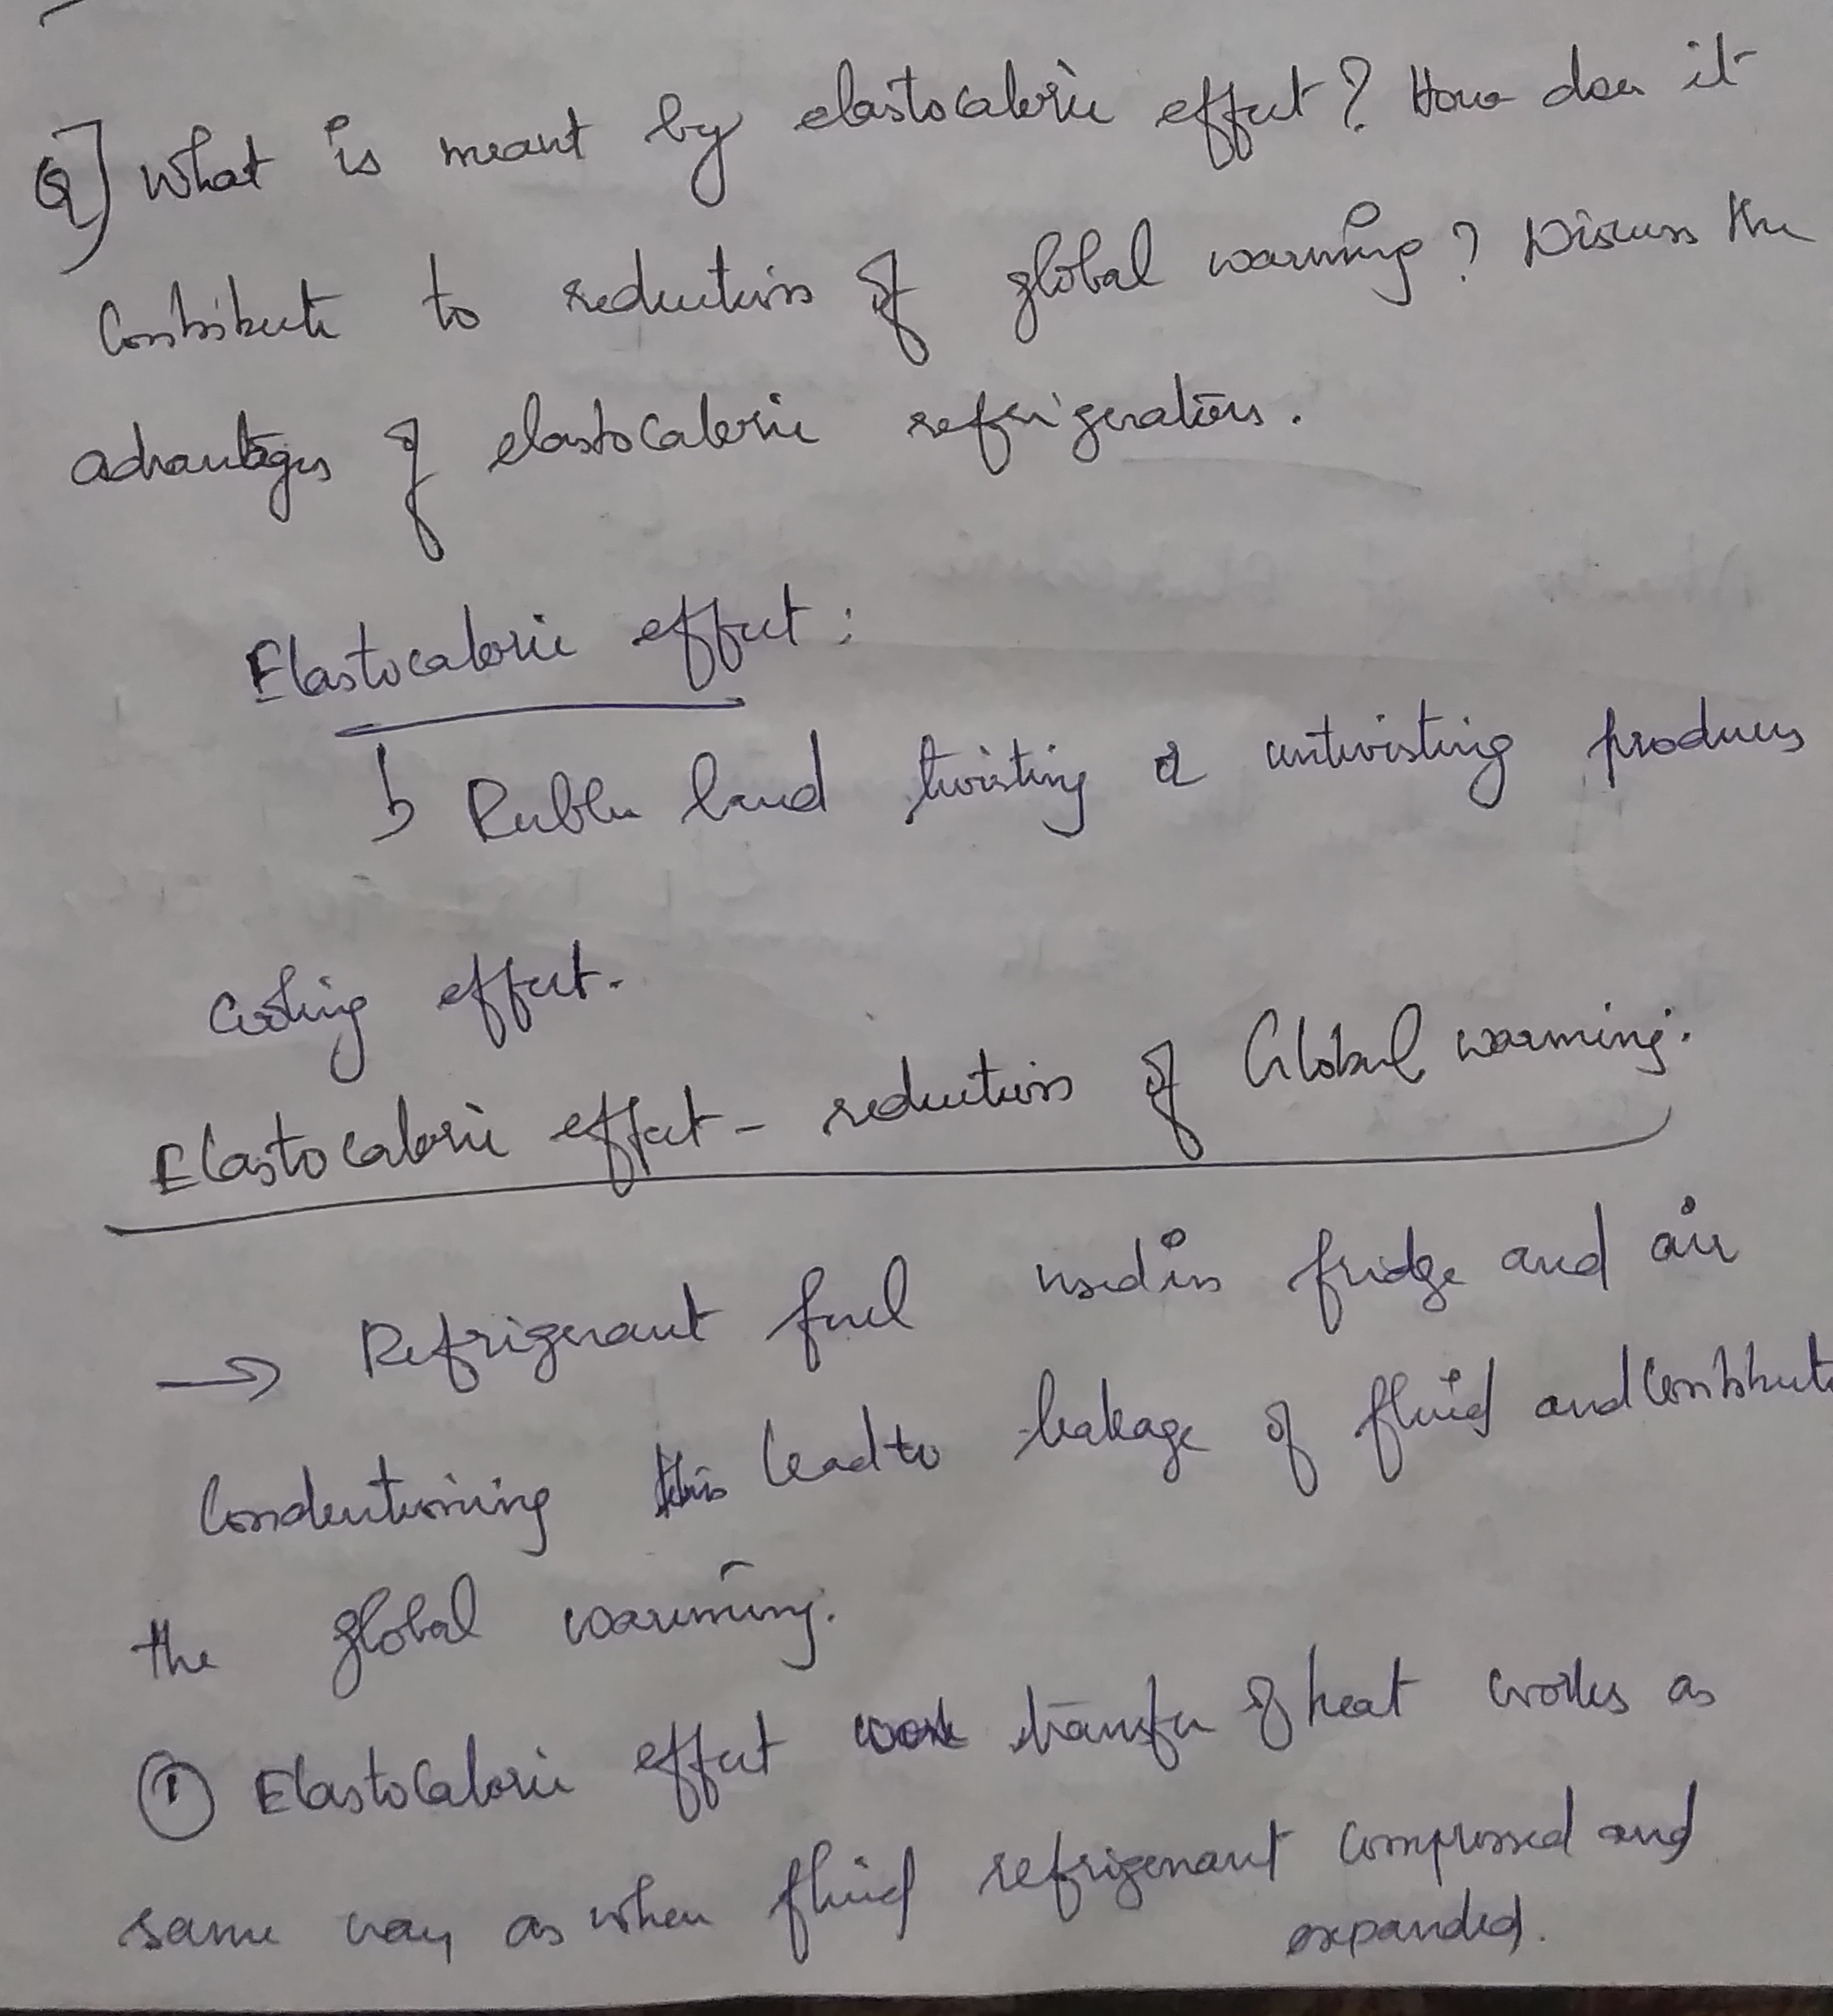 Q] What is meant by elastocaloric effect? How does it
contribute to reduction of global warming? Discuss the
advantages of elastocaloric refrigerators.
Elastocaloric effect:
Rubber band twisting & untwisting produces
cooling effect.
Elastocaloric effect - reduction of Global warming.
→ Refrigerant fuel used in fridge and air
conditioning this lead to leakage of fluid and contribute
the global warming.
① Elastocaloric effect work transfer of heat works as
same way as when fluid refrigerant compressed and
expanded.